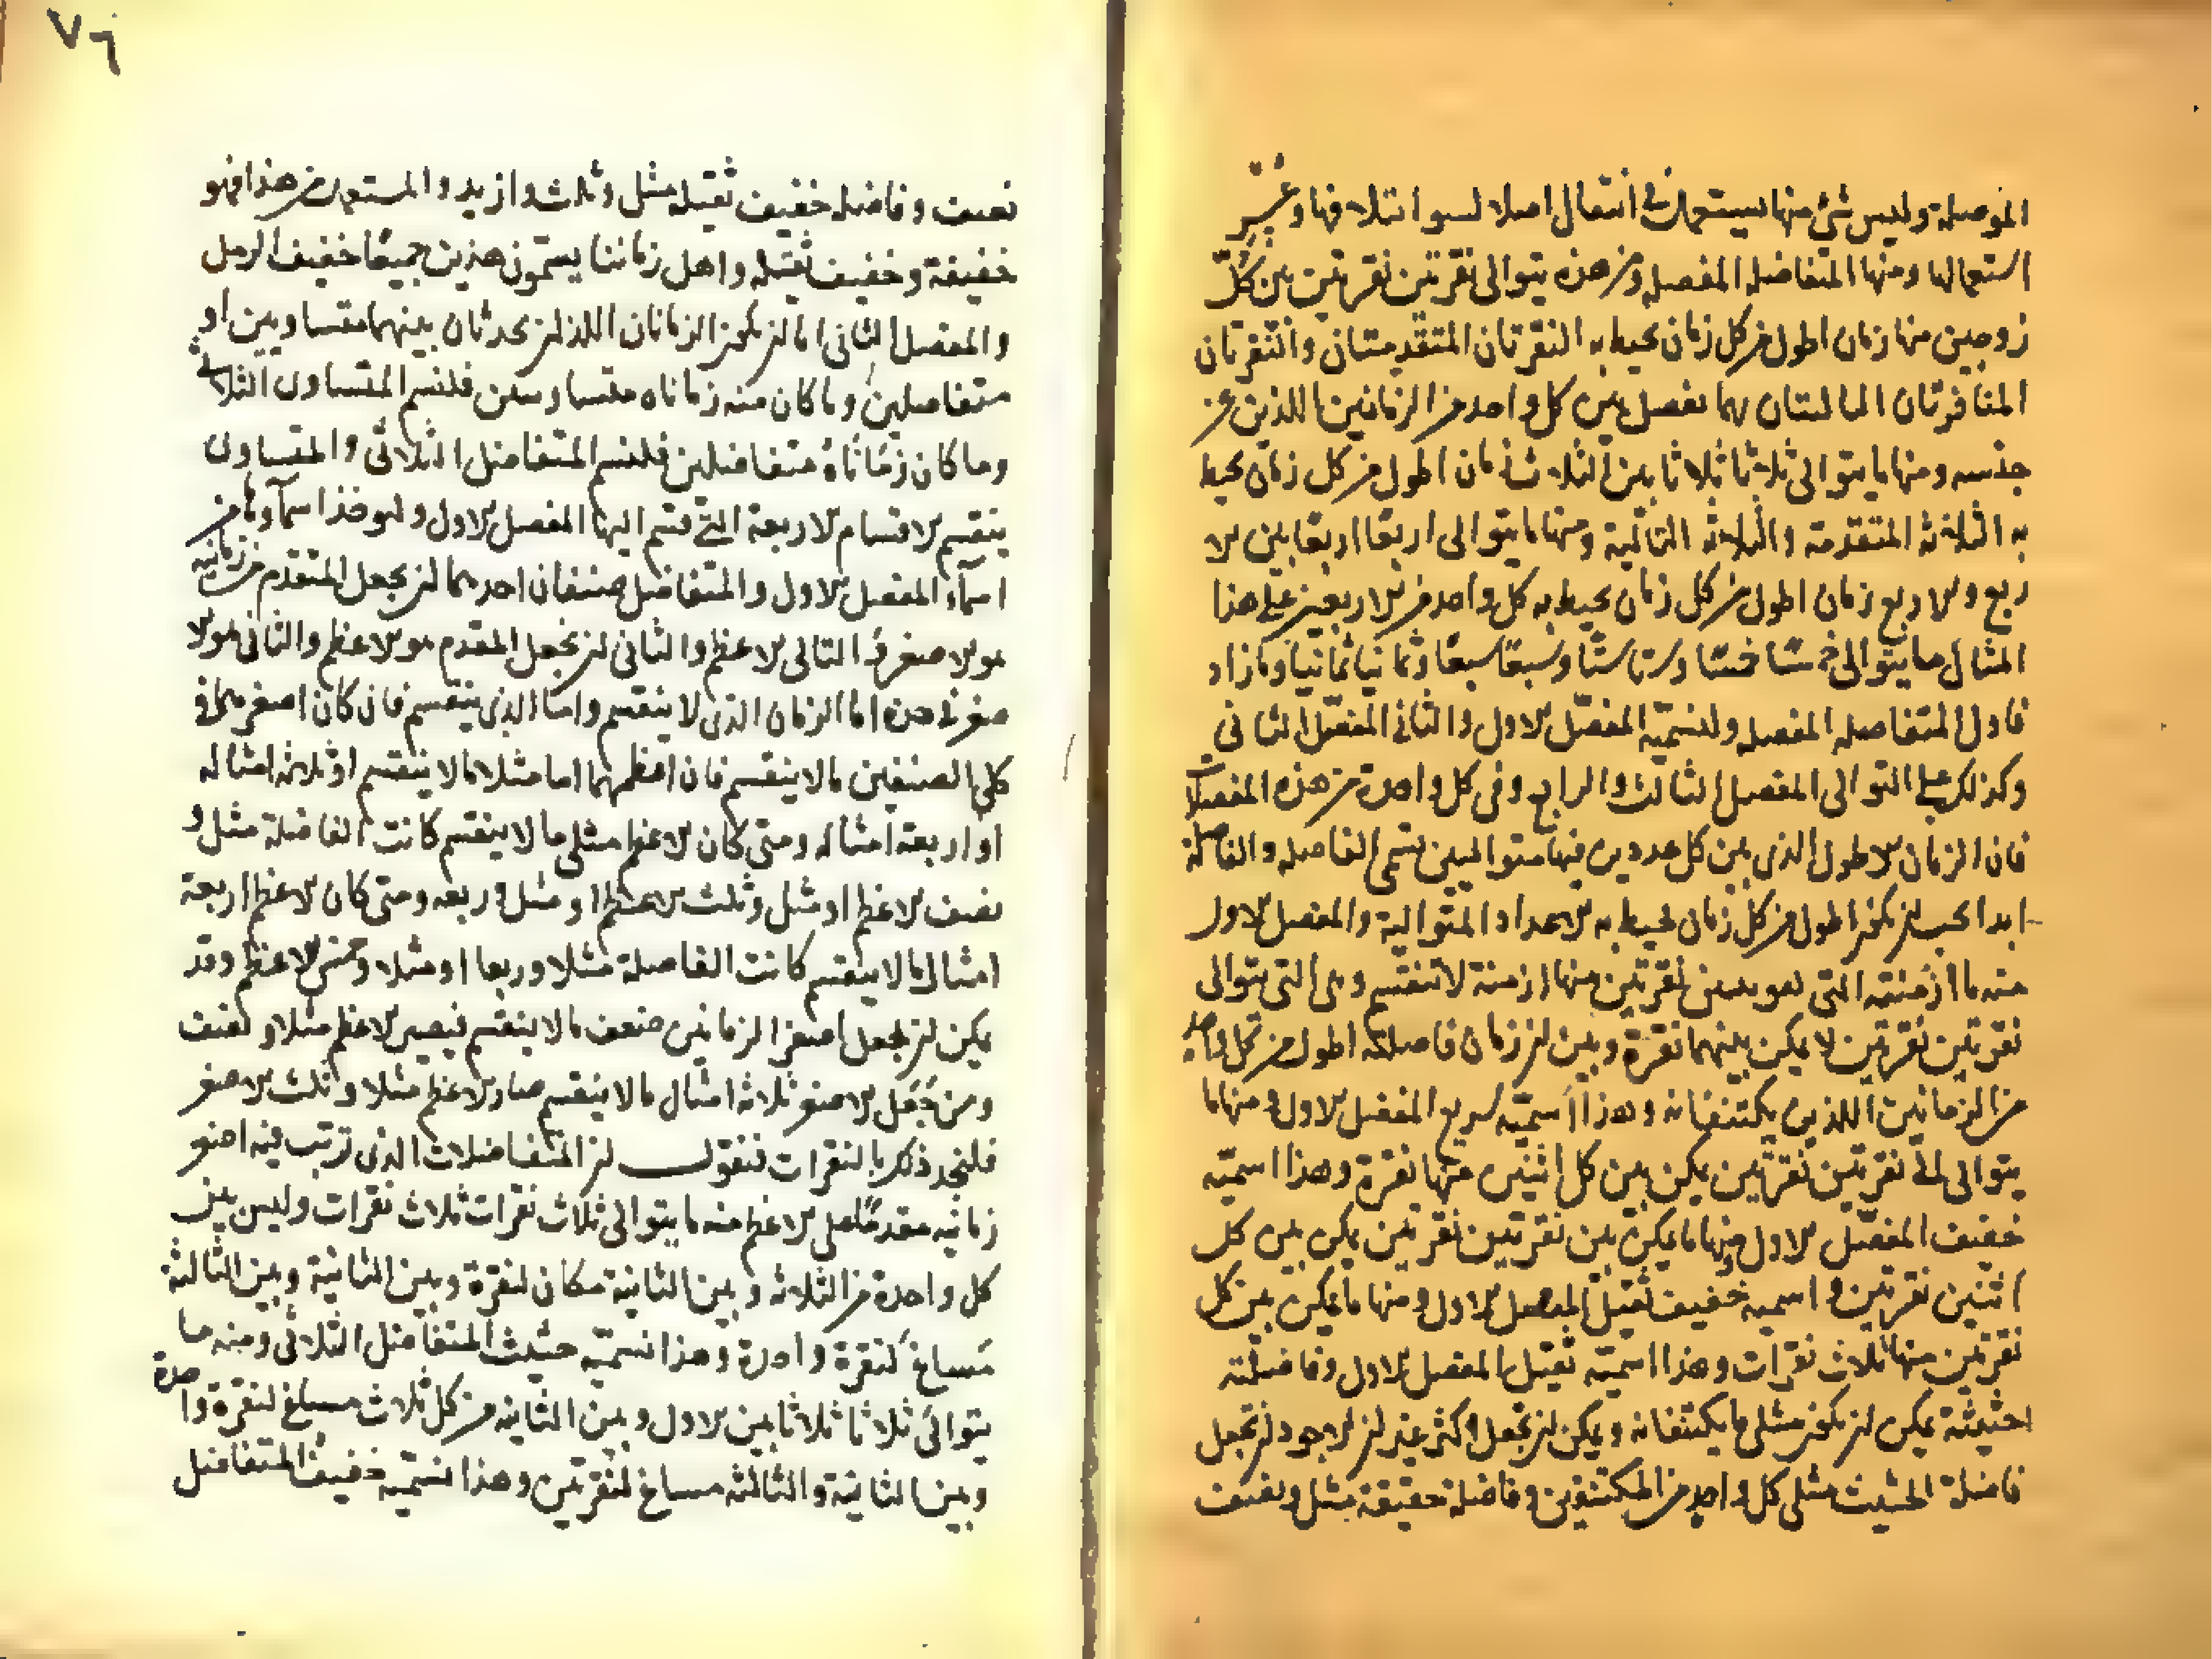 الموصلة وليس شئ منها يستعمل في انتقال اصلا لسو ايتلافها وعسر
استعمالها ومنها المتفاضلة المفصلة ومن هذه يتوالى نقرتين نقرتين بين كل
زوجين منها زمان اطول من كل زمان يحيط به النقرتان المتقدمتان والنقرتان
التاليتان لهما يفصل بين كل واحد من الزمانين اللذين عن
جنسه ومنها ما يتوالى ثلاثا ثلاثا بين الثلاث زمان اطول من كل زمان يحيط
به الثلاثة المتقدمة والثلاثة التالية ومنها ما يتوالى اربعا اربعا بين الا
ربع والاربع زمان اطول من كل زمان يحيط به كل واحد من الاربعين على هذا
المثال ما يتوالى خمسا خمسا وستا ستا وسبعا سبعا وثمانيا ثمانيا وما زاد
فاول المتفاضلة المفصلة ولنسميه المفصل الاول والثاني المفصل الثاني
وكذلك على التوالى المفصل الثالث والرابع وفي كل واحدة من هذه المفصلات
فان الزمان الاطول الذي بين كل عددين فيها متواليين يسمى الفاصلة والفاصلة
ابدا يجب ان يكون اطول من كل زمان يحيط به الاعداد المتوالية والمفصل الاول
منه ما ازمنته التي بين نقرتين منها ازمنة لا تنقسم وهي التي يتوالى
نقرتين نقرتين لا يمكن بينهما نقرة وبين ان زمان فاصلته اطول من كل واحد
من الزمانين اللذين يكتنفانه وهذا اسميه سريع المفصل الاول ومنها ما
يتوالى نقرتين نقرتين يمكن بين كل اثنين منها نقرة وهذا اسميه
خفيف المفصل الاول ومنها ما يمكن بين نقرتين نقرتين يمكن بين كل
اثنين نقرتين واسميه خفيف ثقيل المفصل الاول ومنها ما يمكن بين كل
نقرتين منها ثلاث نقرات وهذا اسميه ثقيل المفصل الاول وفاصلته
حثيثة يمكن ان يكون مثلي ما يكتنفانه ويمكن ان تجعل اكثر غير ان الاجود ان تجعل
فاصلة الحثيث مثلي كل واحد من المكتنفين وفاصلة خفيفة مثل ونصف
٧٦
نصف وفاصلة خفيف ثقيله مثل وثلث وازيد والمستعمل من هذا فهو
خفيفة وخفيف ثقيله واهل زماننا يسمون هذين جميعا خفيف الرمل
والمفصل الثاني اما ان يكون الزمانان اللذان يحدثان بينهما متساويين او
متفاضلين وما كان منه زماناه متساويين فلنسم المتساوي الثلاثي
وما كان زماناه متفاضلين فلنسم المتفاضل الثلاثي والمتساوى
ينقسم الاقسام الاربعة التي قسم اليها المفصل الاول ولنوخذ اسماوها من
اسماء المفصل الاول والمتفاضل صنفان احدهما ان يجعل المتقدم من زمانيه
هو الاصغر والتالى الاعظم والثاني ان يجعل المقدم هو الاعظم والثاني هو الا
صغر اما الزمان الذي لا ينقسم واما الذي ينقسم فان كان اصغرهما في
كلي الصنفين ما لا ينقسم فان اعظمهما اما مثلا ما لا ينقسم او ثلاثة امثاله
او اربعة امثاله ومتى كان الاعظم مثلي ما لا ينقسم كانت الفاصلة مثل و
نصف الاعظم او مثل وثلث الاعظم او مثل وربعه ومتى كان الاعظم اربعة
امثال ما لا ينقسم كانت الفاصلة مثلا وربعا او مثلا وخمس الاعظم وقد
يمكن ان يجعل اصغر الزمانين ضعف ما لا ينقسم فيصير الاعظم مثلا ونصف
ومن جعل الاصغر ثلاثة امثال ما لا ينقسم صار الاعظم مثلا وثلث الاصغر
فلنجد ذلك بالنقرات فنقول ان المتفاضلات الذي ترتب فيه اصغر
زمانيه مقدما على الاعظم منه ما يتوالى ثلاث نقرات ثلاث نقرات وليس بين
كل واحدة من الثلاثة وبين الثانية مكان لنقرة وبين الثانية وبين الثالثة
مساغ لنقرة واحدة وهذا نسميه حثيث المتفاضل الثلاثي ومنه ما
يتوالى ثلاثا ثلاثا بين الاول وبين الثانية من كل ثلاث مساغ لنقرة واحدة
وبين الثانية والثالثة مساغ لنقرتين وهذا نسميه خفيف المتفاضل